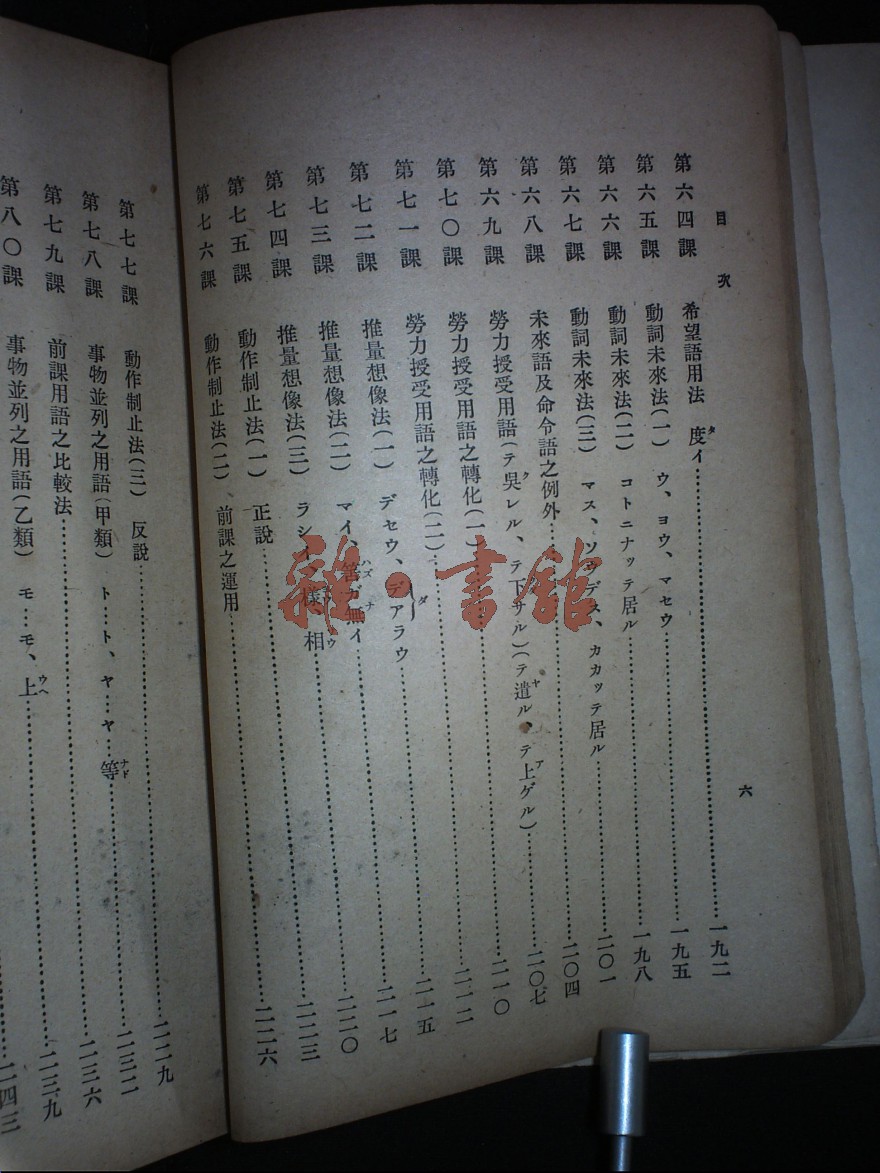 目次 六
第六四課 希望語用法 度タイ……一九二
第六五課 動詞未來法(一) ウ、ヨウ、マセウ……一九五
第六六課 動詞未來法(二) コトニナッテ居ル……一九八
第六七課 動詞未來法(三) マス、ソウデス、カカッテ居ル……二〇一
第六八課 未來語及命令語之例外……二〇四
第六九課 勞力授受用語(テ吳クレル、テ下サル)(テ遣ヤル、テ上アゲル)……二〇七
第七〇課 勞力授受用語之轉化(一)……二一〇
第七一課 勞力授受用語之轉化(二)……二一二
第七二課 推量想像法(一) デセウ、デアラウ……二一五
第七三課 推量想像法(二) マイ、筈ハズガ無ナイ……二一七
第七四課 推量想像法(三) ラシイ、樣、相……二二〇
第七五課 動作制止法(一) 正說……二二三
第七六課 動作制止法(二) 前課之運用……二二六
第七七課 動作制止法(三) 反說……二二九
第七八課 事物並列之用語(甲類) ト…ト、ヤ…ヤ…等ナド……二三二
第七九課 前課用語之比較法……二三六
第八〇課 事物並列之用語(乙類) モ…モ、上ウヘ……二三九
二四三
雜·書館